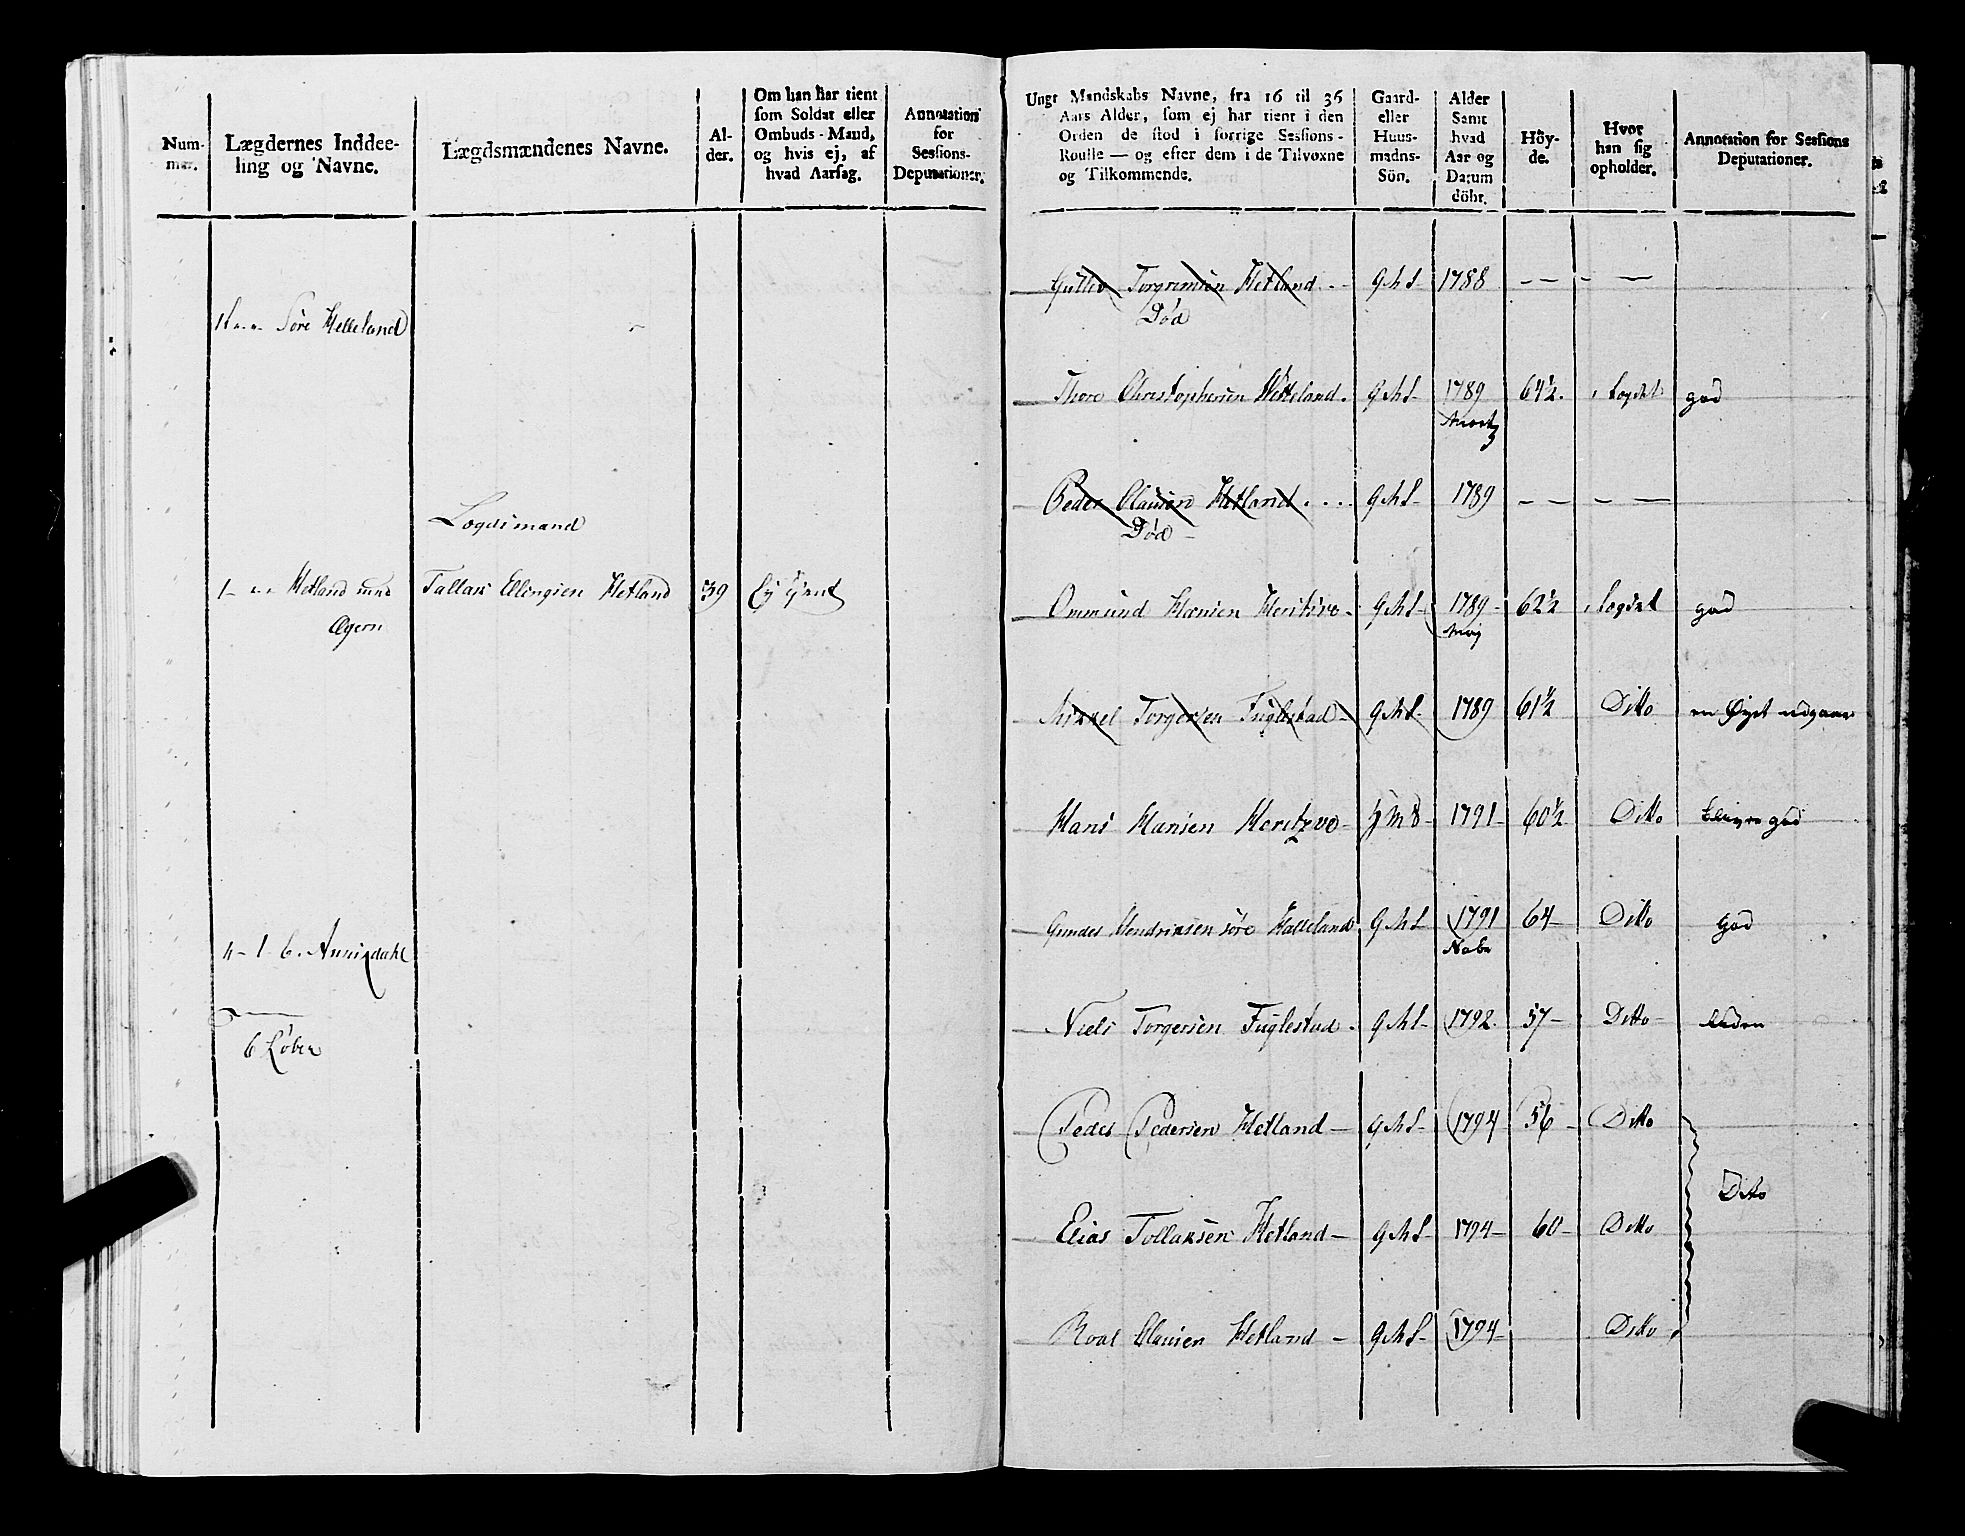 Num-
mer.
Lægdernes Inddee-
ling og Navne.
Lægdsmændenes Navne.
Al-
der.
Om han har tient
som Soldat eller
Ombuds-Mand,
og hvis ej, af
hvad Aarsag.
Annotation
for
Sessions-
Deputationer.
Søre Helleland
Logdsmand
1 - " " Hetland
Tallak Ellingsen Hetland 39 Ej tjent
Øgern
6. Annisdahl
6 Løber
Ungt Mandskabs Navne, fra 16 til 36
Aars Alder, som ej har tient i den
Orden de stod i forrige Sessions-
Roulle — og efter dem i de Tilvoxne
og Tilkommende.
Gaard-
eller
Huus-
mands-
Sön.
Alder
Samt
hvad
Aar og
Datum
döbt.
Höy-
de.
Hvor
han sig
opholder.
Annotation for Sessions
Deputationer.
Torgremsen Hetland - - G M S 1788 — — - —
Død
Thore Christophersen Helleland. G M S- 1789 64½. i Logdet god
Martz
3
Peder Olausen Hetland . . . . G M S- 1789 — — - —
Død -
Ommund Hansen Heritsvo - G M S- 1789- 62½ i Logdet god
Maj
Mikkel Torgersen Fuglestad - G M S- 1789 61½ Ditto en Øyst udgaar
Hans Hansen Heritzvo - H M S - 1791- 60½ Ditto god
Gundes Hendriksen søre Halleland G M S 1791 64- Ditto God
Niels Torgersen Fuglestad - G M S- 1792. 57- Ditto- liden
Peder Pedersen Hetland — G M S- 1794 56 - Ditto
Ditto
Elias Tollaksen Hetland — G M S- 1794- 60- Ditto
Roal Olausen Hetland — G M S- 1794- Ditto